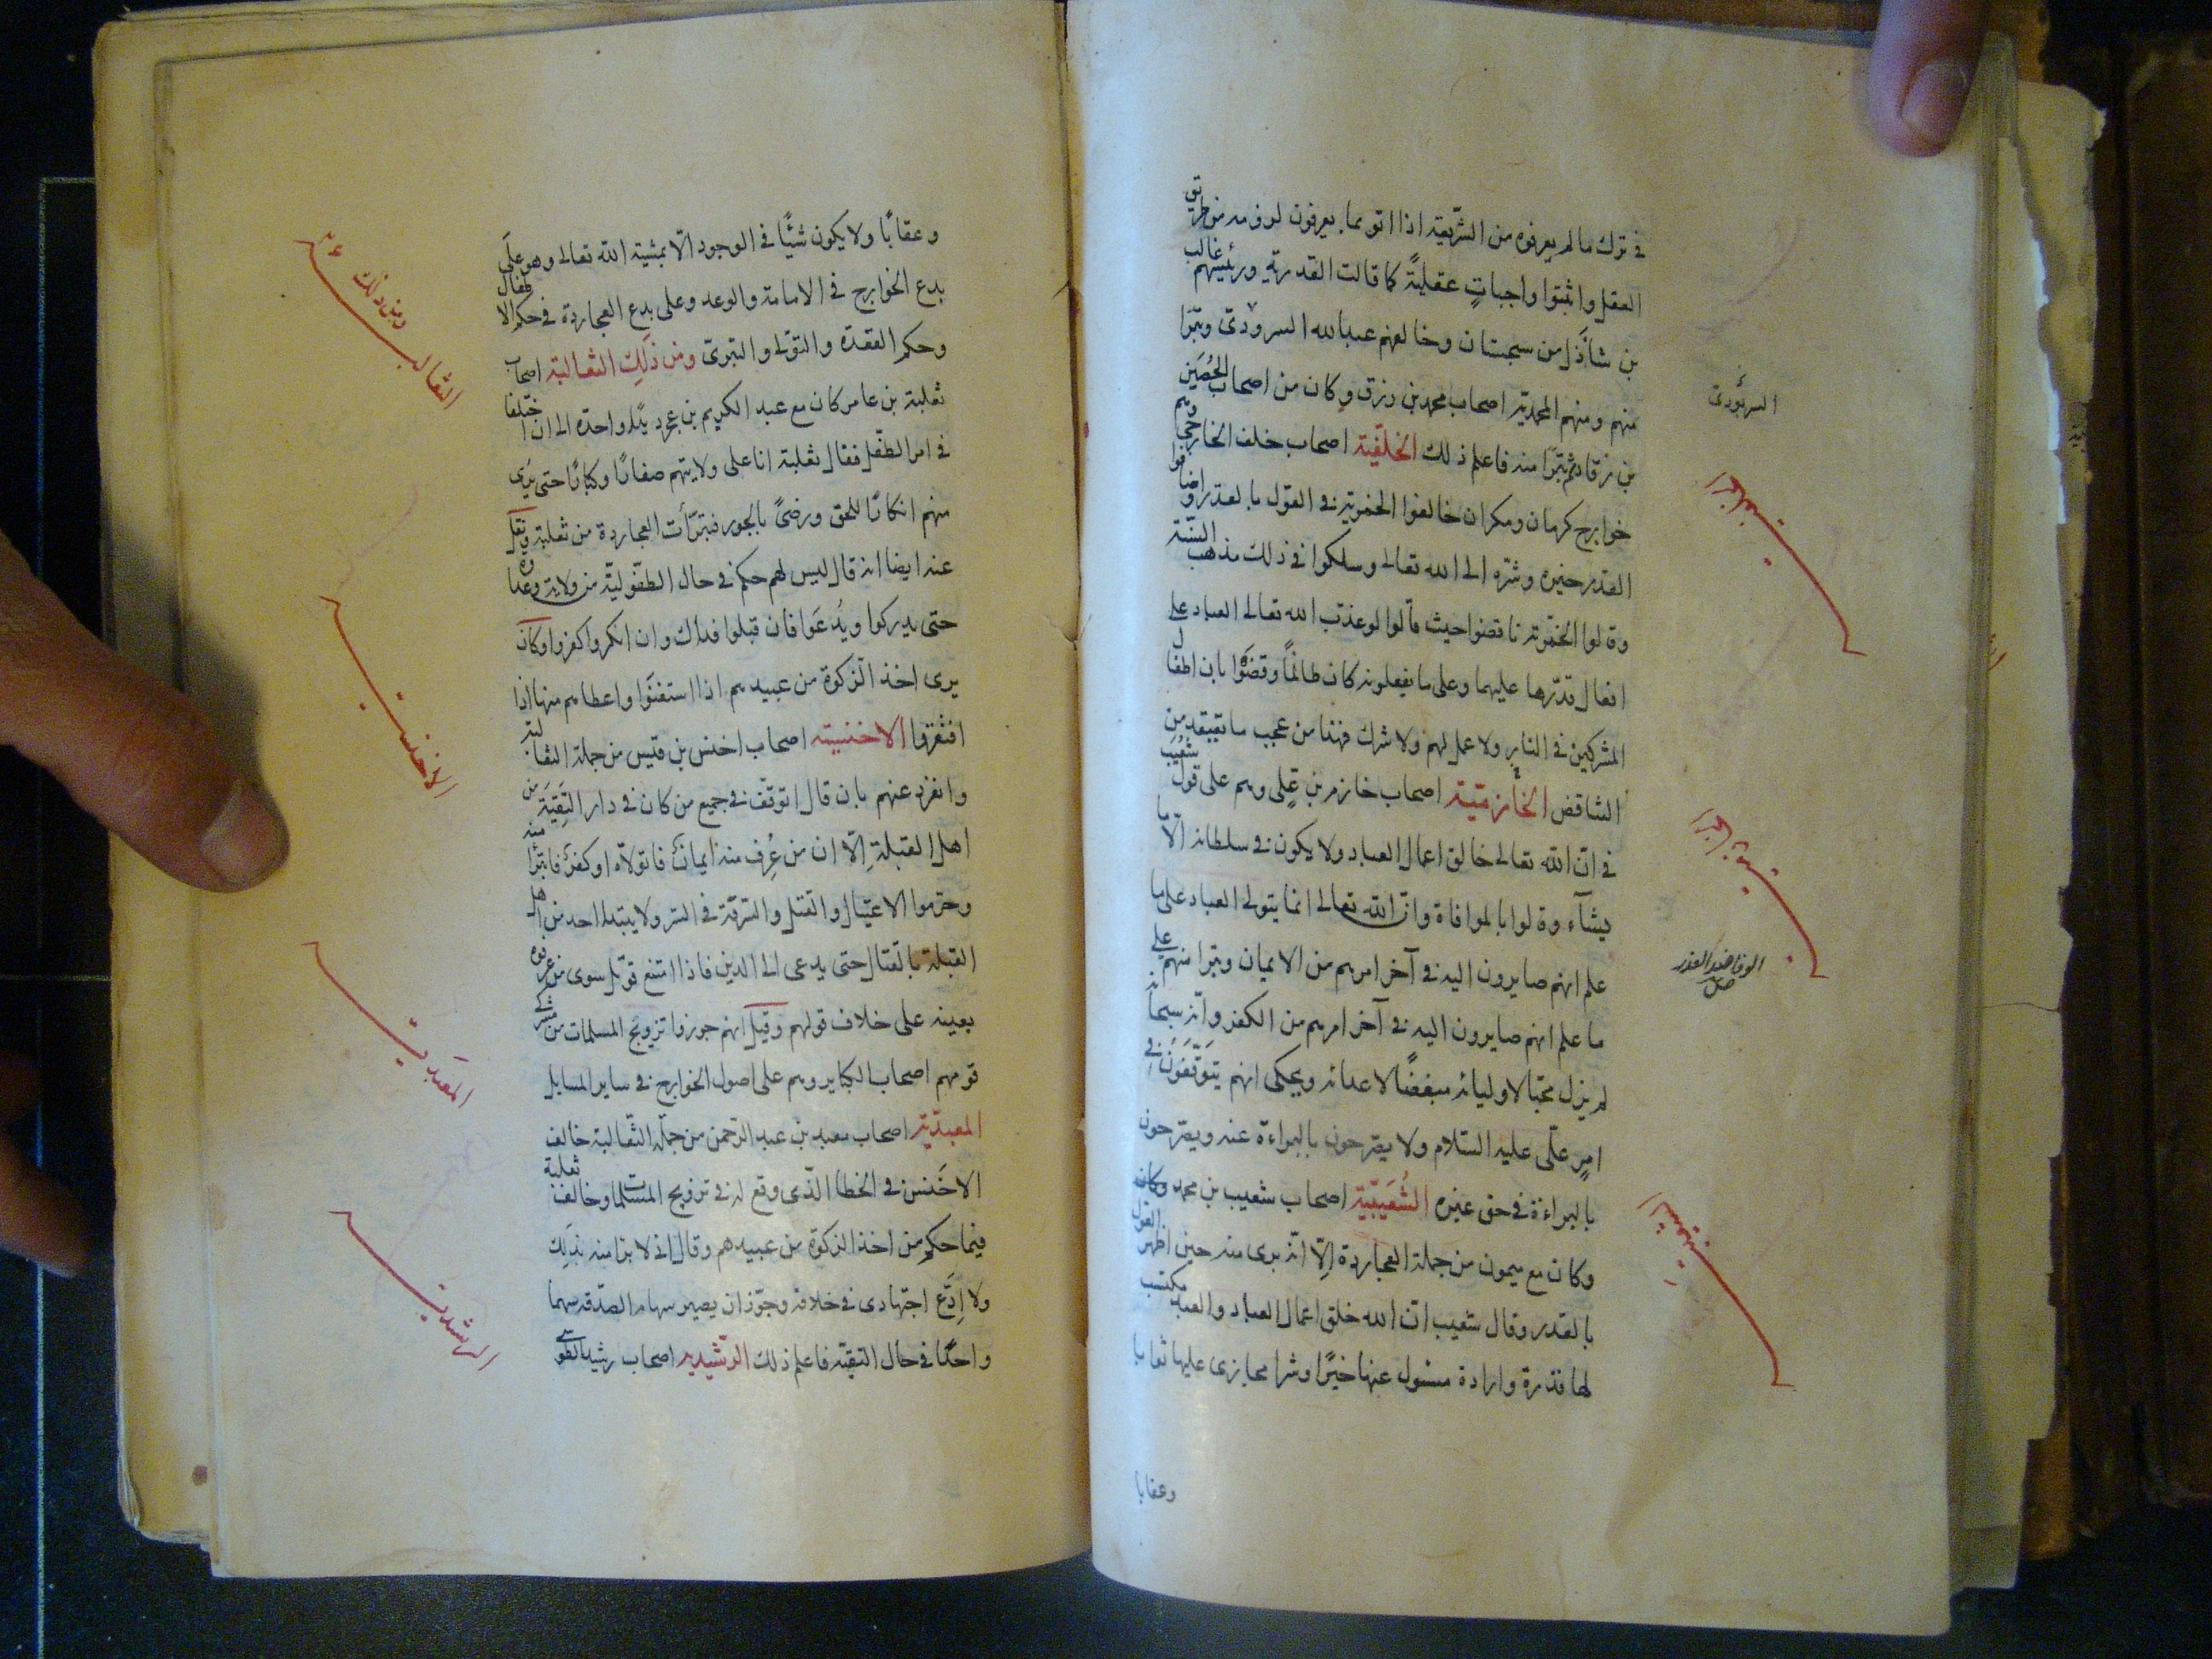 في ترك ما لم يعرفوه من الشريعة اذا اتوا بما يعرفون لزومه من طريق
العقل واثبتوا واجباتٍ عقليةً كما قالت القدرية ورئيسهم غالب
بن شاذل من سجستان وخالفهم عبدالله السرودى وتبرا
منهم ومنهم المحمدية اصحاب محمد بن رزق وكان من اصحاب الحُصَين
بن رقاد ثم تبرّا منه فاعلم ذلك الخلفية اصحاب خلف الخارجي وهم
خوارج كرمان ومكران خالفوا الحمزية في القول بالقدر واضافوا
القدر خيره وشره الى الله تعالى وسلكوا في ذلك مذهب السنّة
وقالوا الحمزية ناقضوا حيث قالوا لو عذّب الله تعالى العباد على
افعال قدّرها عليهما وعلى ما يفعلونه كان ظالمًا وقضَوْا بان اطفال
المشركين في النار ولا عمل لهم ولا شرك فهذا من عجب ما يعتقد من
التناقض الخازمية اصحاب خازم بن علي وهم على قول شعيب
في انّ الله تعالى خالق اعمال العباد ولا يكون في سلطانه الّا ما
يشآء وقالوا بالموافاة وانّ الله تعالى انما يتولى العباد على ما
علم انهم صايرون اليه في آخر امرهم من الايمان وتبرا منهم على
ما علم انهم صايرون اليه في آخر امرهم من الكفر وانّه سبحانه
لم يزل محبّا لاوليائه مبغضًا لاعدائه ويحكى انهم يَتَوَقّفَونَ في
امر علّى عليه السّلام ولا يصرّحون بالبراءة عنه ويصرّحون
بالبراءة في حق غيره الشُعَيبيّة اصحاب شعيب بن محمد وكان
وكان مع ميمون من جملة العجاردة اِلّا انّه برى منه حين اظهر القول
بالقدر وقال شعيب انّ الله خلق اعمال العباد والعبد مكتسب
لها قدرة وارادة مسئول عنها خيرًا وشرا مجازى عليها ثوابا
وعقابا
السرنودى
الخلفية
الخازمية
الشعيبية
وعقابًا ولا يكون شيئًا في الوجود الّا بمشية الله تعالى وهو على
بدع الخوارج في الامامة والوعد وعلى بدع العجاردة في حكم الاطفال
وحكم القعدة والتولى والتبرى ومن ذَلِك الثعالبة اصحاب
ثعلبة بن عامر كان مع عبد الكريم بن عجرد يدًا واحدة الى ان اختلفا
في امر الطفل فقال ثعلبة انا على ولايتهم صغارًا وكبارًا حتى نرى
منهم انكارًا للحق ورضىً بالجور فتبرّأت العجاردة من ثعلبة ونقل
عنه ايضا انه قال ليس لهم حكم في حال الطفوليّة من ولاية وعداوة
حتى يدركوا ويُدعَوا فان قبلوا فذاك وان انكروا كفروا وكان
يرى اخذ الزكوة من عبيدهم اذا استغنَوا واعطاهم منها اذا
افتقروا الاخنسية اصحاب اخنس بن قيس من جملة الثعالبة
وانفرد عنهم بان قال اتوقّف في جميع من كان في دار التقيّة من
اهل القبلةِ اِلّا ان من عُرِف منه ايمانٌ فاتولّاه او كفرٌ فاتبرّا منه
وحرّموا الاغتيال والقتل والسرقة في السر ولا يبتدا احد من اهل
القبلة بالقتال حتى يدعى الى الدين فاذا امتنع قوتل سوى من عرفوه
بعينه على خلاف قولهم وقيل انهم جوزوا تزويج المسلمات من مشركي
قومهم اصحاب الكباير وهم على اصول الخوارج في ساير المسايل
المعبديّة اصحاب معبد بن عبد الرحمن من جملة الثعالبة خالف
الاخنس في الخطا الذّى وقع له في تزويج المسلمات وخالف ثعلبة
فيما حكم من اخذ الزكوة من عبيدهم وقال انى لا برا منه بذلِك
ولا ادَع اجتهادى في خلافه وجوّز ان يصير سهام الصدقة سهما
واحدًا في حال التقيّه فاعلم ذلك الرشيديه اصحاب رشيد الطوسي
ومن ذلك
الثعالبة
الاخنسية
المعبدية
الرشيدية